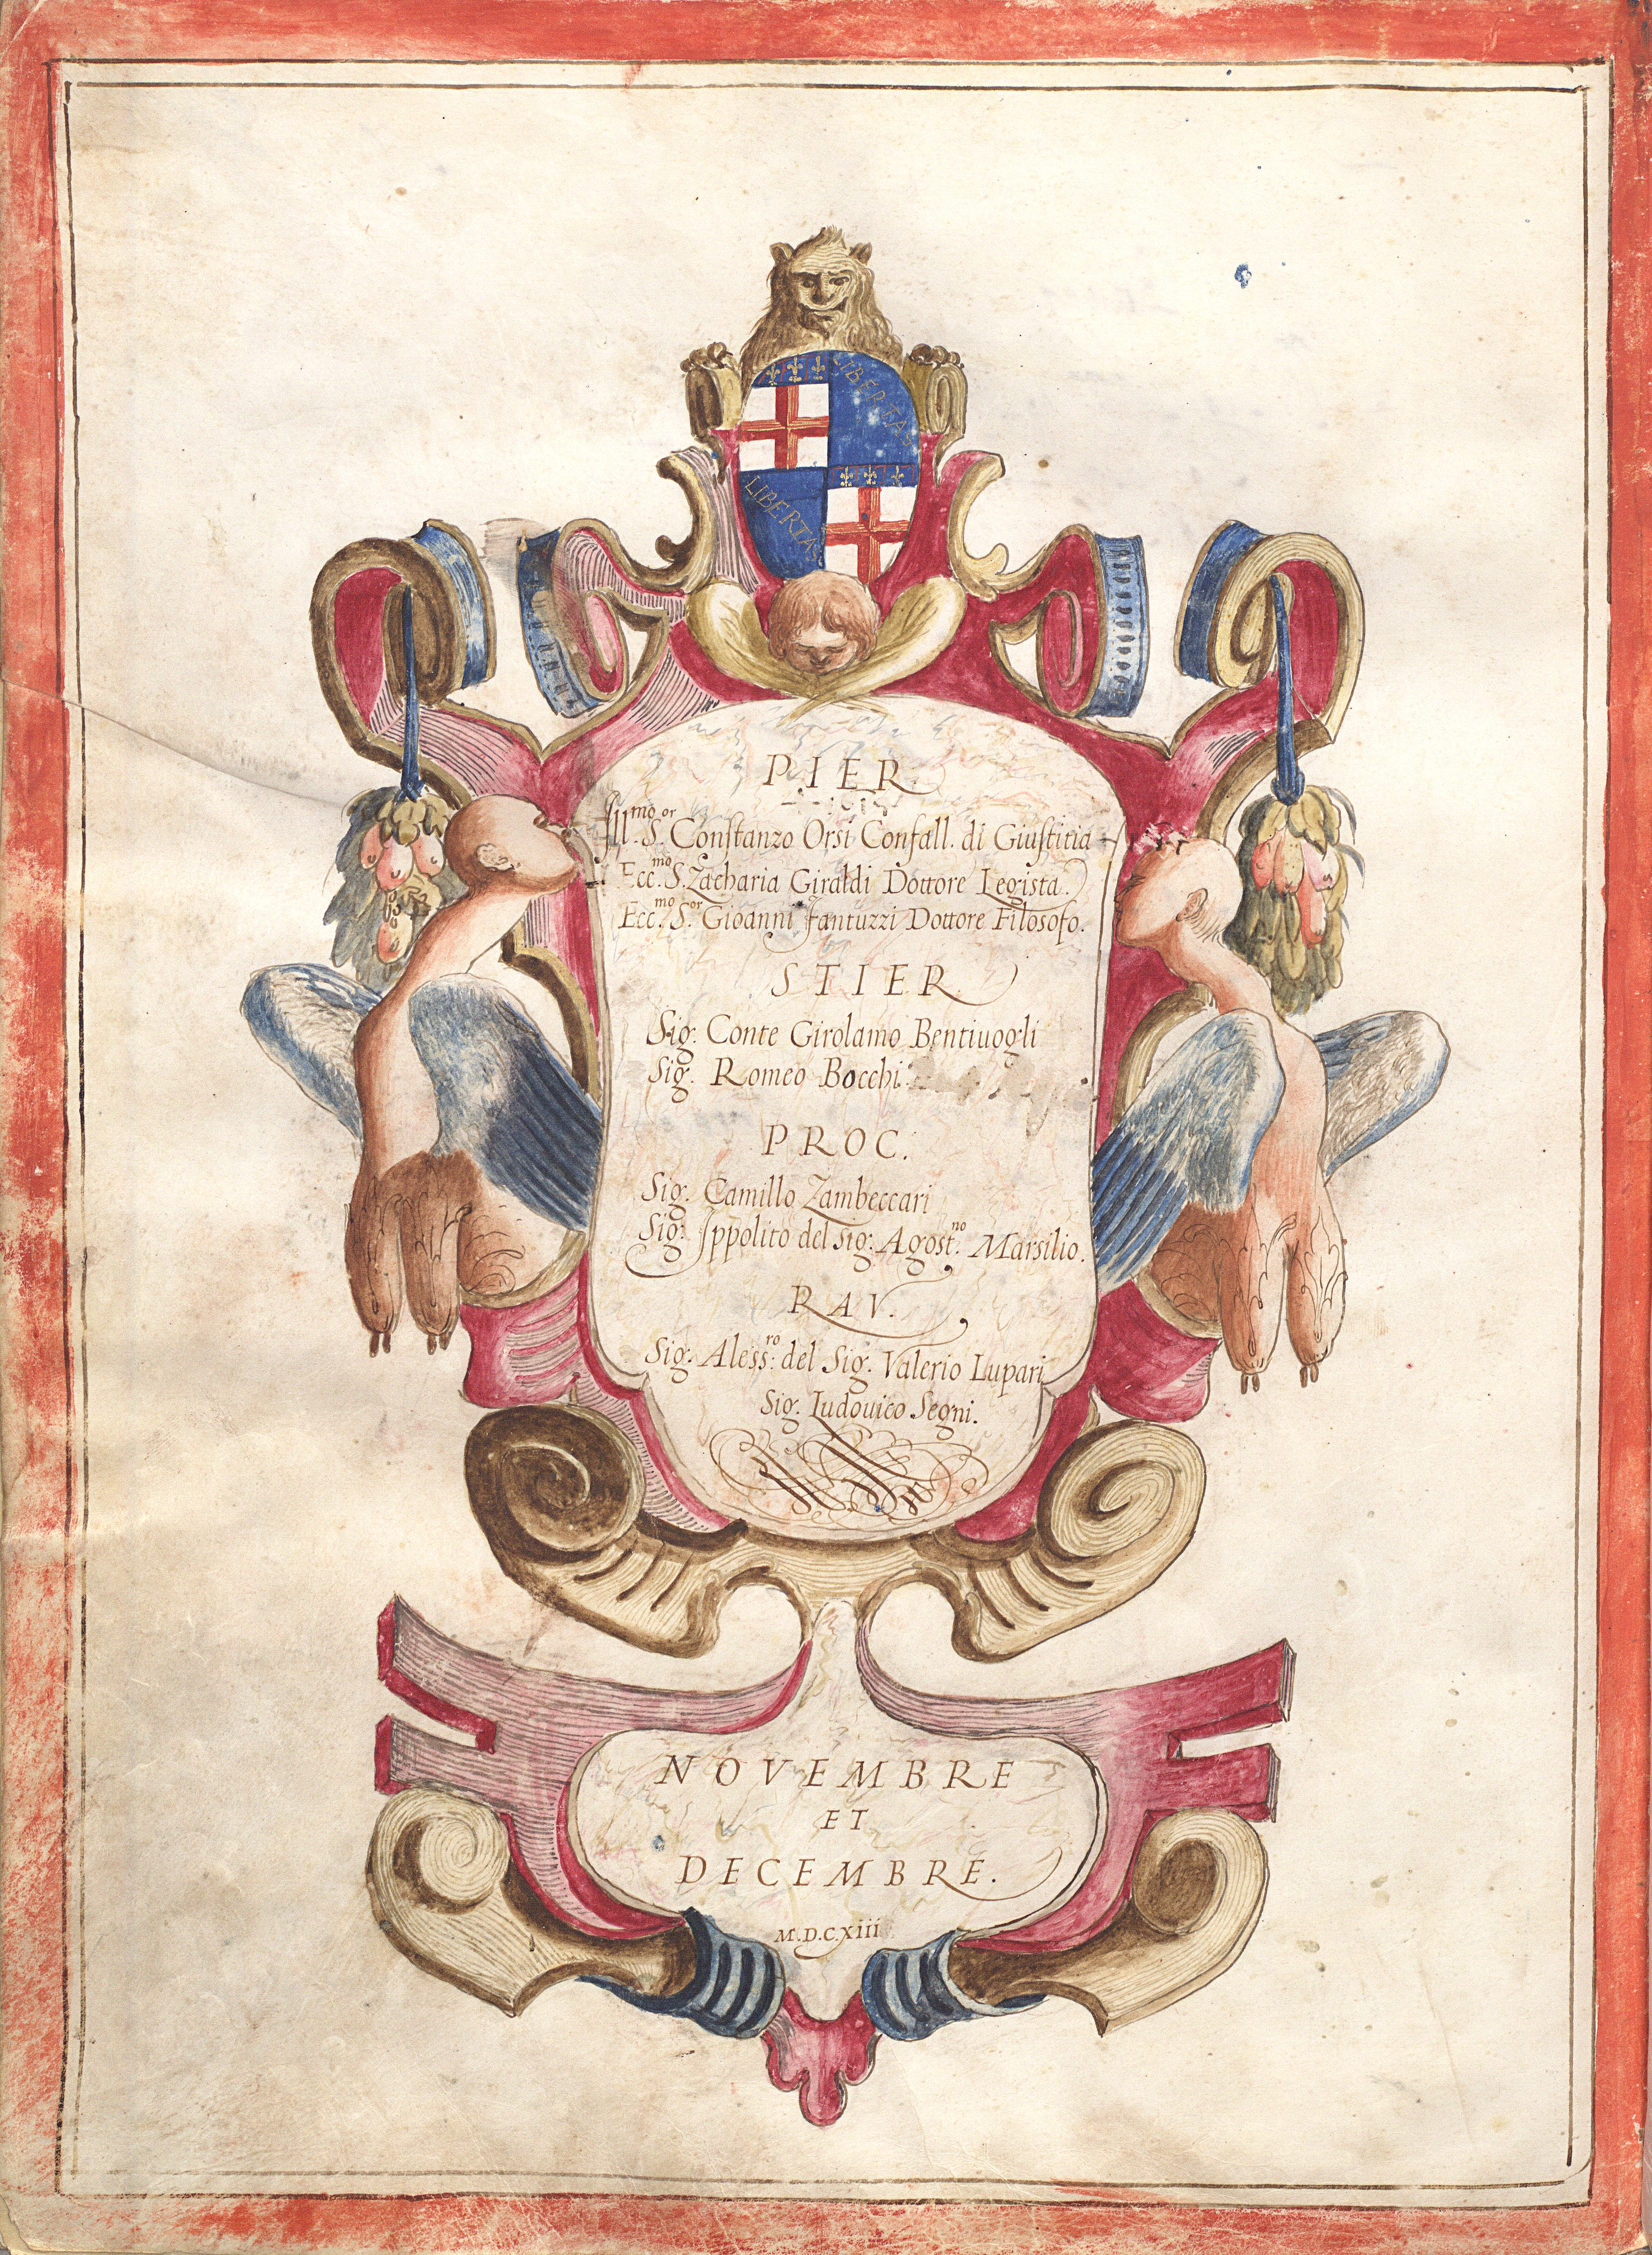 LIBERTAS
LIBERTAS
PIER.
Ill.mo S.or Constanzo Orsi Confall. di Giustitia
Ecc.mo S. Zacharia Giraldi Dottore Legista.
Ecc.mo S.or Gioanni Fantuzzi Dottore Filosofo.
STIER.
Sig. Conte Girolamo Bentiuogli
Sig. Romeo Bocchi.
PROC.
Sig. Camillo Zambeccari
Sig. Ippolito del Sig. Agost.no Marsilio.
RAV.
Sig. Aless.ro del Sig. Valerio Lupari
Sig. Ludouico Segni.
NOVEMBRE
ET
DECEMBRE.
M.D.C.Xiii